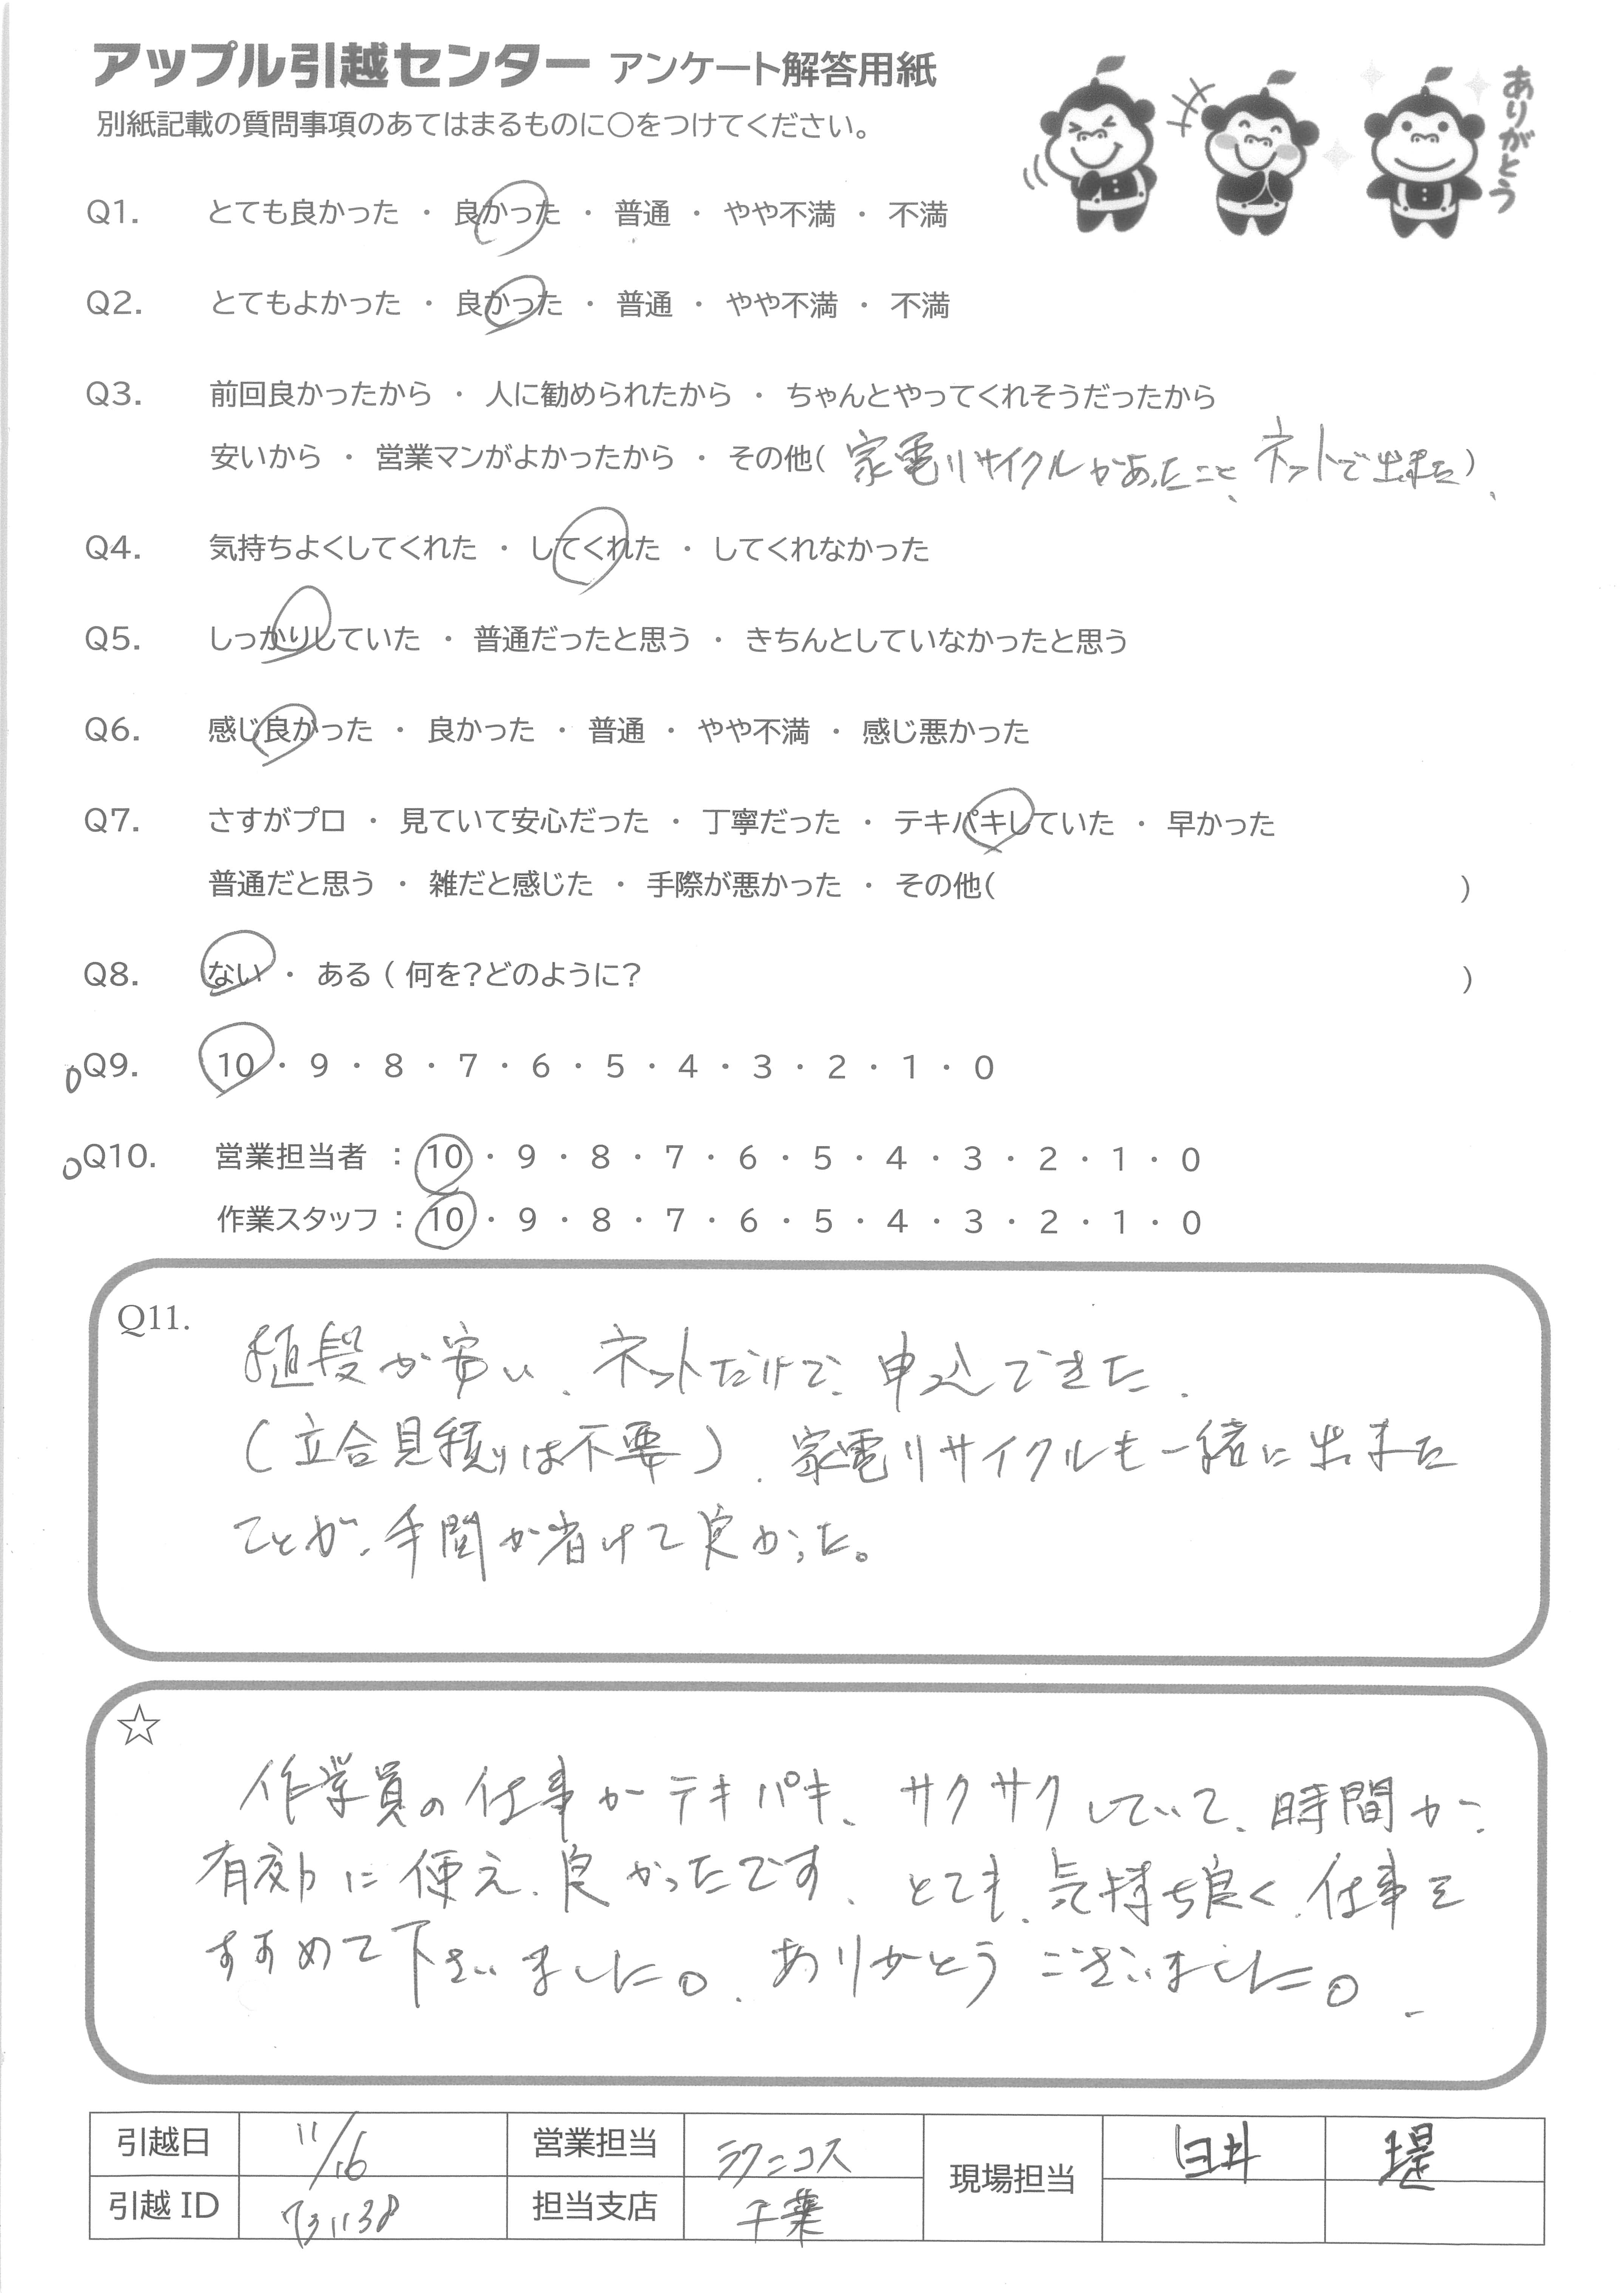 アップル引越センター アンケート解答用紙
別紙記載の質問事項のあてはまるものに○をつけてください。
ありがとう
Q1. とても良かった ・ 良かった ・ 普通 ・ やや不満 ・ 不満
Q2. とてもよかった ・ 良かった ・ 普通 ・ やや不満 ・ 不満
Q3. 前回良かったから ・ 人に勧められたから ・ ちゃんとやってくれそうだったから
安いから ・ 営業マンがよかったから ・ その他( 家電リサイクルがあったこと、ネットで出来た )
Q4. 気持ちよくしてくれた ・ してくれた ・ してくれなかった
Q5. しっかりしていた ・ 普通だったと思う ・ きちんとしていなかったと思う
Q6. 感じ良かった ・ 良かった ・ 普通 ・ やや不満 ・ 感じ悪かった
Q7. さすがプロ ・ 見ていて安心だった ・ 丁寧だった ・ テキパキしていた ・ 早かった
普通だと思う ・ 雑だと感じた ・ 手際が悪かった ・ その他( )
Q8. ない ・ ある ( 何を?どのように? )
Q9. 10 ・ 9 ・ 8 ・ 7 ・ 6 ・ 5 ・ 4 ・ 3 ・ 2 ・ 1 ・ 0
Q10. 営業担当者 : 10 ・ 9 ・ 8 ・ 7 ・ 6 ・ 5 ・ 4 ・ 3 ・ 2 ・ 1 ・ 0
作業スタッフ : 10 ・ 9 ・ 8 ・ 7 ・ 6 ・ 5 ・ 4 ・ 3 ・ 2 ・ 1 ・ 0
Q11.
値段が安い、ネットだけで、申込できた、
(立合見積りは不要)、家電リサイクルも一緒に出来た
ことが、手間が省けて良かった。
☆
作業員の仕事がテキパキ、サクサクしていて、時間が、
有効に使え、良かったです、とても、気持ち良く、仕事を
すすめて下さいました。ありがとうございました。
引越日 11/16 営業担当 ラクニコス 現場担当 臼井 堤
引越 ID 731138 担当支店 千葉